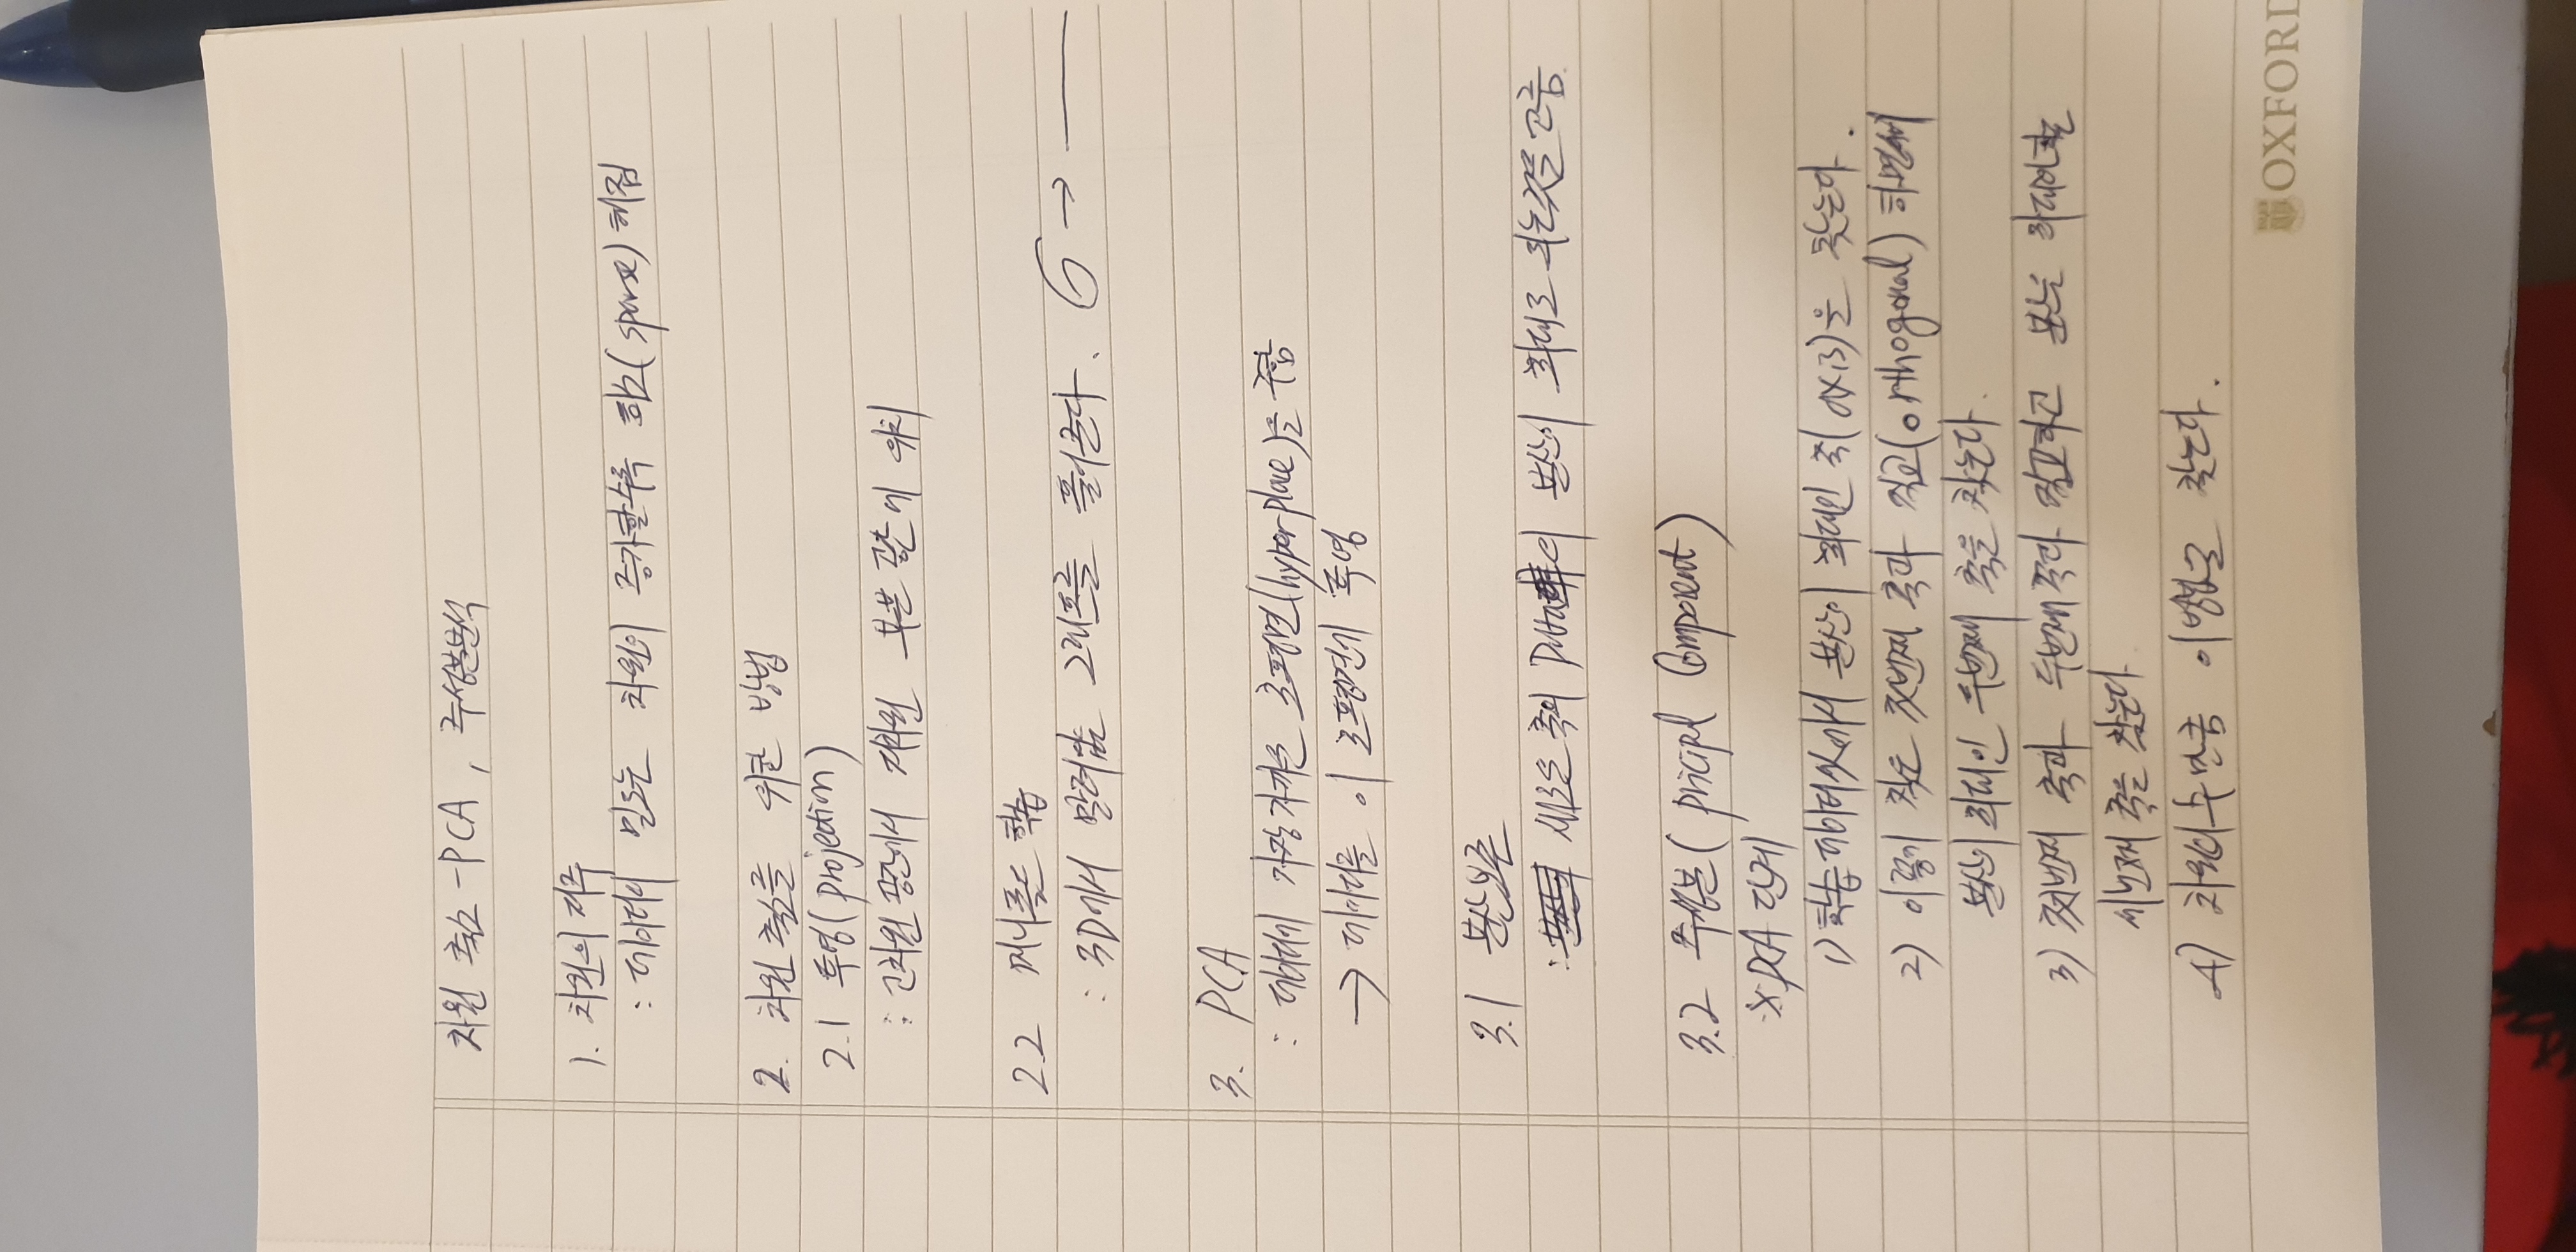 차원 축소 - PCA, 주성분분석
1. 차원의 저주
: 데이터의 밀도는 차원이 증가할수록 희소(sparse)해짐
2. 차원 축소를 위한 방법
2.1 투영(projection)
: 고차원 공간에서 저차원 부분 공간에 위치
2.2 매니폴드 학습
: 3D에서 말려있는 그래프를 풀어준다.
3. PCA
: 데이터에 가장 가까운 초평면(hyperplane)을 구함
→ 데이터를 이 초평면에 투영
3.1 분산보존
: 새로운 축의 Data의 분산이 최대로 되는것을 고름
3.2 주성분(pricipal Component)
※ PCA 단계
1) 학습 데이터셋에서 분산이 최대인 축(axis)을 찾는다.
2) 이렇게 찾은 첫번째 축과 직교(orthogonal)하면서
분산이 최대인 두번째 축을 찾는다.
3) 첫번째 축과 두번째 축과 직교하고 분산을 최대화하는
세번째 축을 찾는다
4) 차원의 수만큼 이 방법으로 찾는다.
OXFORD